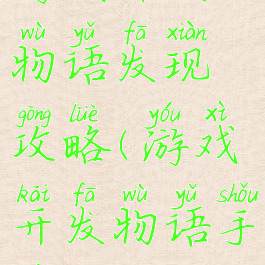 wù yǔ fā xiàn
物语发现
gōng lüè yóu xì
攻略(游戏
kāi fā wù yǔ shǒu
开发物语手